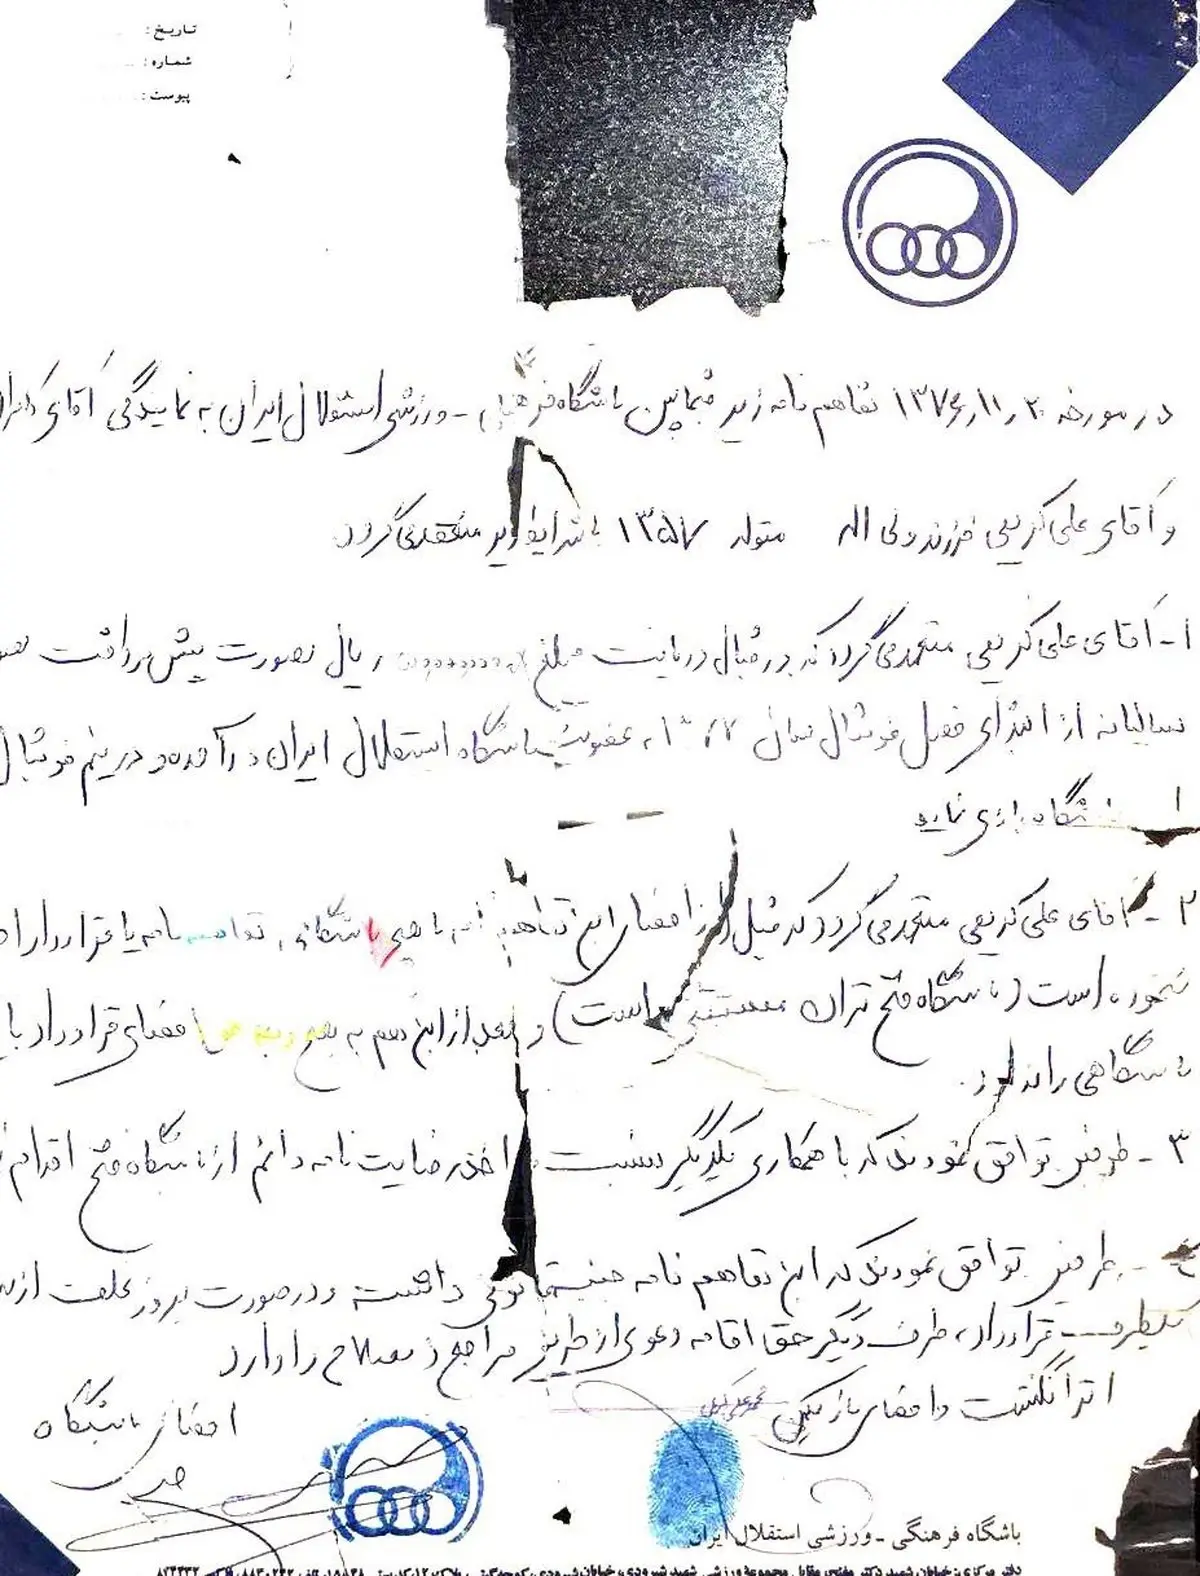 تاریخ:
شماره:
پیوست:
در مورخه ۱۳۷۶/۱۱/۲۰ تفاهم نامه زیر فیمابین باشگاه فرهنگی - ورزشی استقلال ایران به نمایندگی آقای
و آقای علی کریمی فرزند ولی اله متولد ۱۳۵۷ با شرایط زیر منعقد می گردد
۱- آقای علی کریمی متعهد می گردد که در قبال دریافت مبلغ ریال بصورت پیش پرداخت
سالیانه از ابتدای فصل فوتبال سال به عضویت باشگاه استقلال ایران درآمده و در تیم فوتبال
باشگاه بازی نماید
۲- آقای علی کریمی متعهد می گردد که قبل از امضای این تفاهم نامه با هیچ باشگاهی تفاهم نامه یا قرارداد
نخورده است (باشگاه فتح تهران مستثنی است) و بعد از این هم به هیچ امضای قرارداد با
باشگاهی را ندارد.
۳- طرفین توافق نمودند که با همکاری یکدیگر نسبت به اخذ رضایت نامه دائم از باشگاه فتح اقدام
۴- طرفین توافق نمودند که این تفاهم نامه جنبه قانونی داشته و در صورت بروز تخلف از
یکطرف قرارداد، طرف دیگر حق اقامه دعوی از طریق مراجع ذیصلاح را دارد
اثر انگشت و امضای بازیکن
امضای باشگاه
باشگاه فرهنگی - ورزشی استقلال ایران
دفتر مرکزی: خیابان شهید دکتر مفتح، مقابل مجموعه ورزشی شهید شیرودی، خیابان شیرودی،